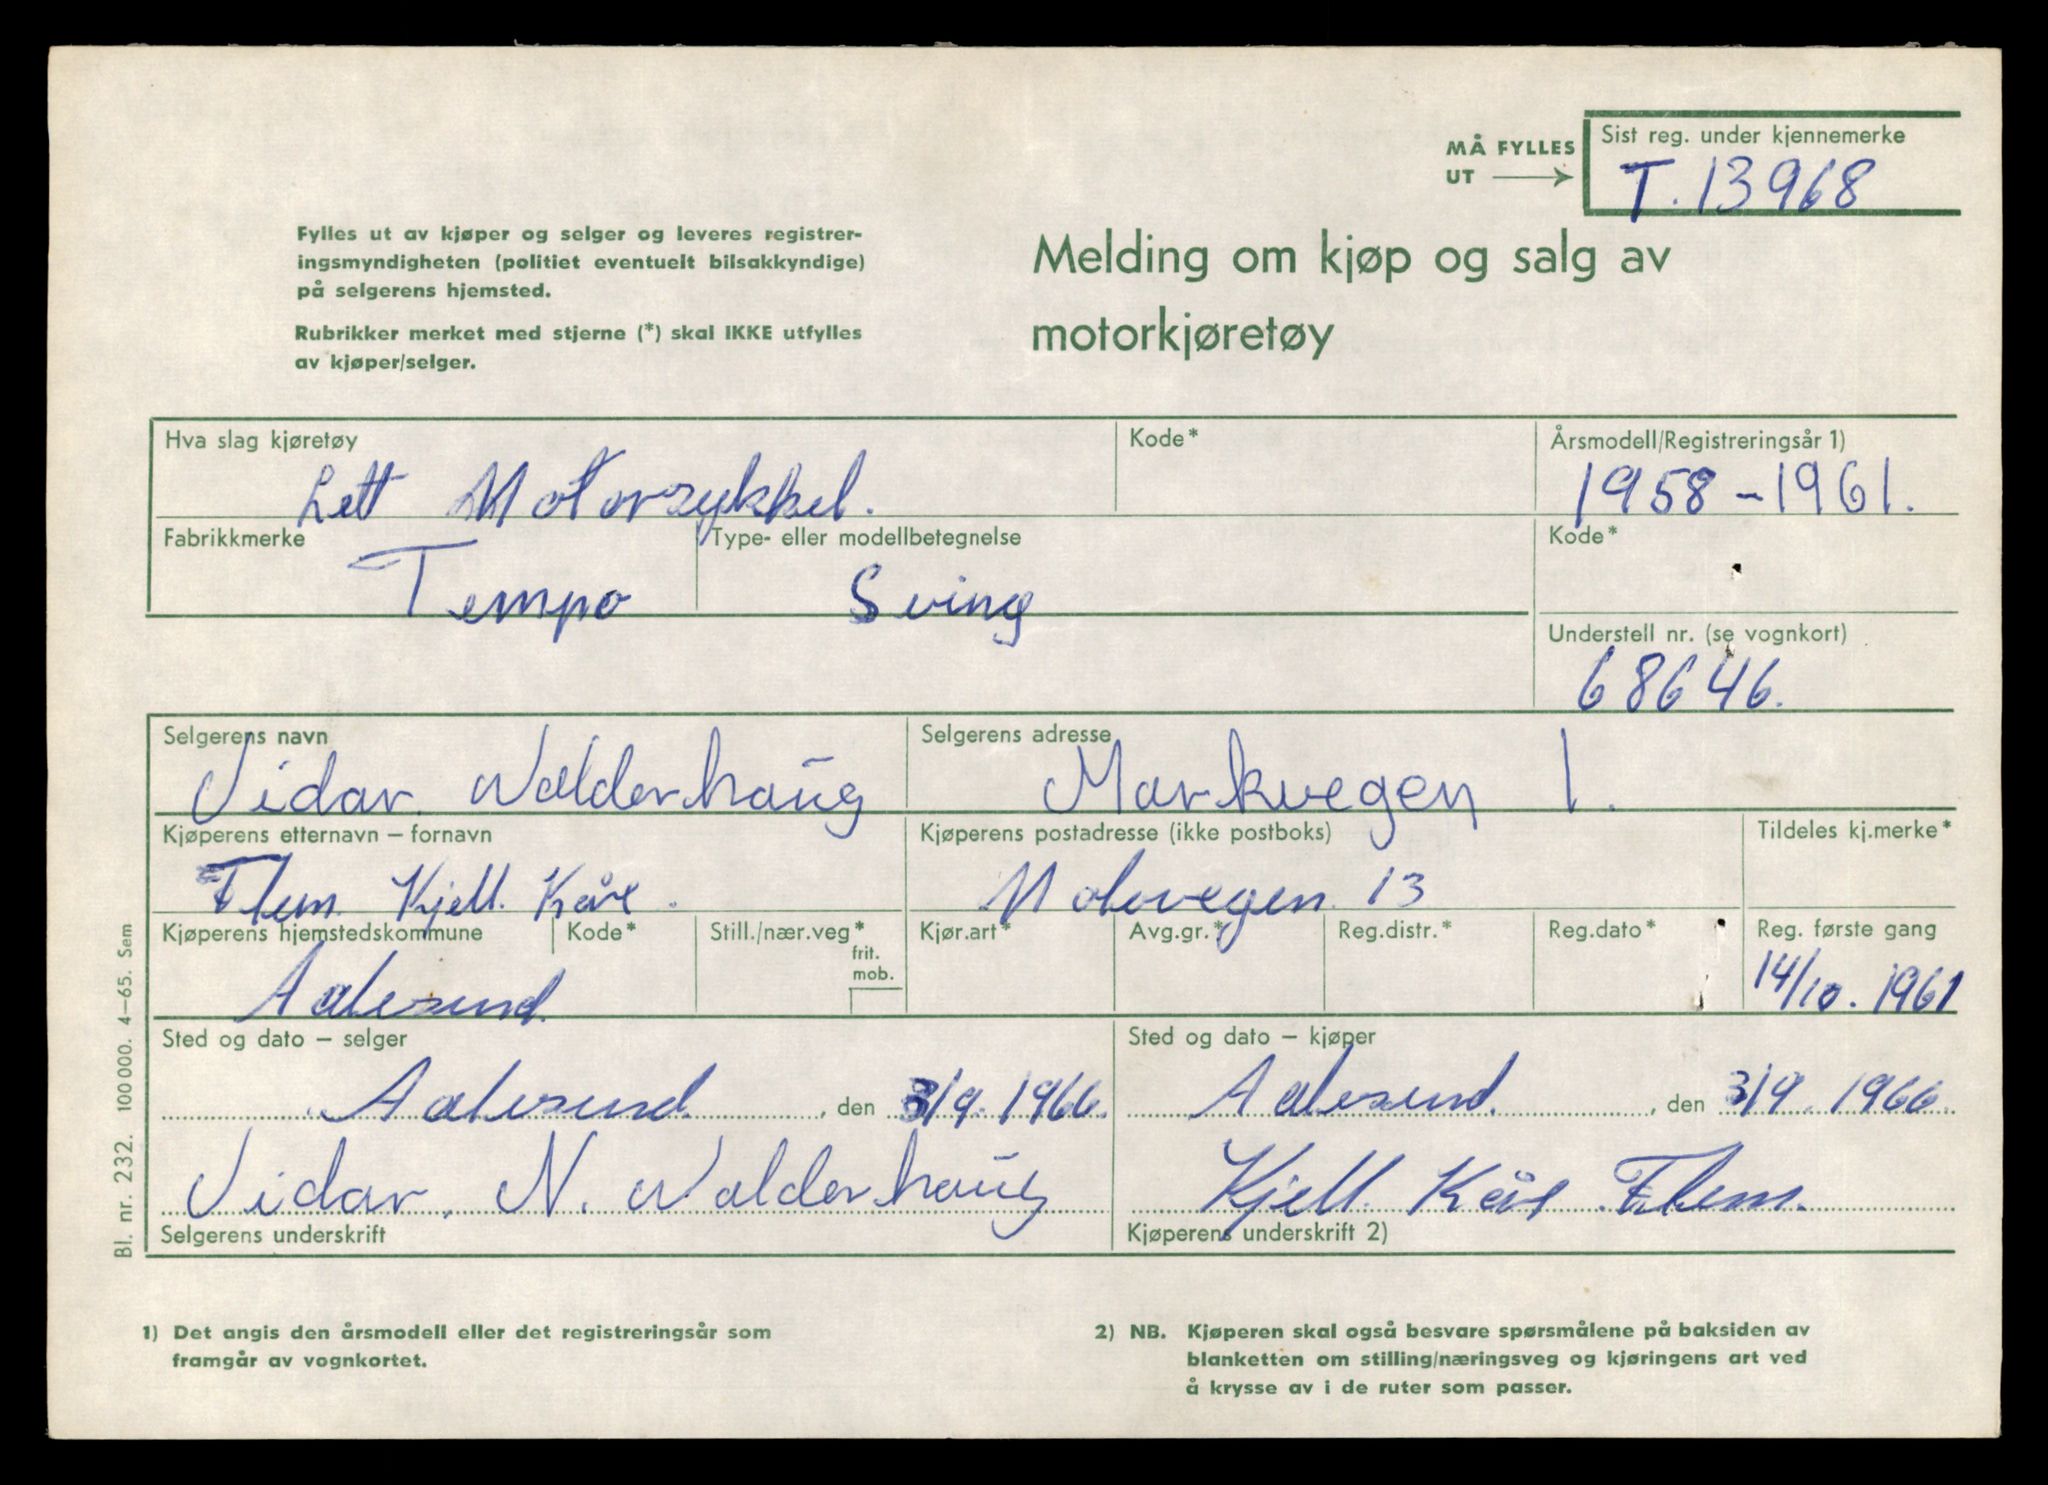 MÅ FYLLES UT
Sist reg. under kjennemerke
T. 13968
Fylles ut av kjøper og selger og leveres registrer-
ingsmyndigheten (politiet eventuelt bilsakkyndige)
på selgerens hjemsted.
Rubrikker merket med stjerne (*) skal IKKE utfylles
av kjøper/selger.
Melding om kjøp og salg av
motorkjøretøy
Hva slag kjøretøy
Lett Motorsykkel.
Kode*
Årsmodell/Registreringsår 1)
1958 - 1961.
Fabrikkmerke
Tempo
Type- eller modellbetegnelse
Sving
Kode*
Understell nr. (se vognkort)
68646.
Selgerens navn
Vidar Walderhaug
Selgerens adresse
Markvegen 1.
Kjøperens etternavn – fornavn
Flem Kjell. Kåre.
Kjøperens postadresse (ikke postboks)
Molovegen 13
Tildeles kj.merke*
Kjøperens hjemstedskommune
Aalesund.
Kode*
Still./nær.veg*
frit.
mob.
Kjør.art*
Avg.gr.*
Reg.distr.*
Reg.dato*
Reg. første gang
14/10. 1961
Sted og dato – selger
Aalesund , den 3/9. 1966.
Sted og dato – kjøper
Aalesund. , den 3/9. 1966.
Vidar. N. Walderhaug
Selgerens underskrift
Kjell. Kåre Flem.
Kjøperens underskrift 2)
Bl. nr. 232. 100 000. 4–65. Sem
1) Det angis den årsmodell eller det registreringsår som
framgår av vognkortet.
2) NB. Kjøperen skal også besvare spørsmålene på baksiden av
blanketten om stilling/næringsveg og kjøringens art ved
å krysse av i de ruter som passer.